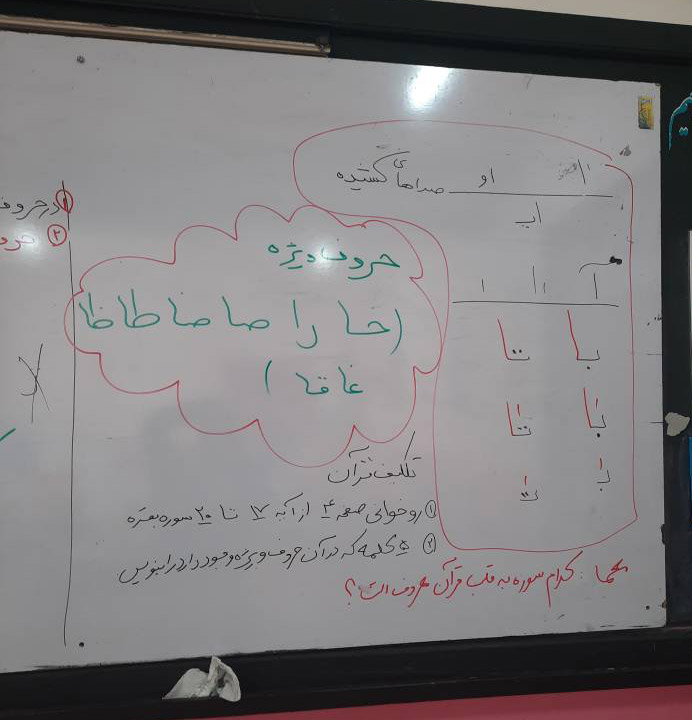 صداهای کشیده
ا او
ای
آ ا ا
با تا
با تا
با تا
حروف ویژه
(خا را صا ضا طا ظا
غا قا)
تکلیف قرآن
① روخوانی صفحه ۴ از آیه ۱۷ تا ۲۰ سوره بقره
② ۵ کلمه که در آن حروف ویژه وجود دارد را بنویس
معما: کدام سوره به قلب قرآن معروف است؟
① در حروف
②